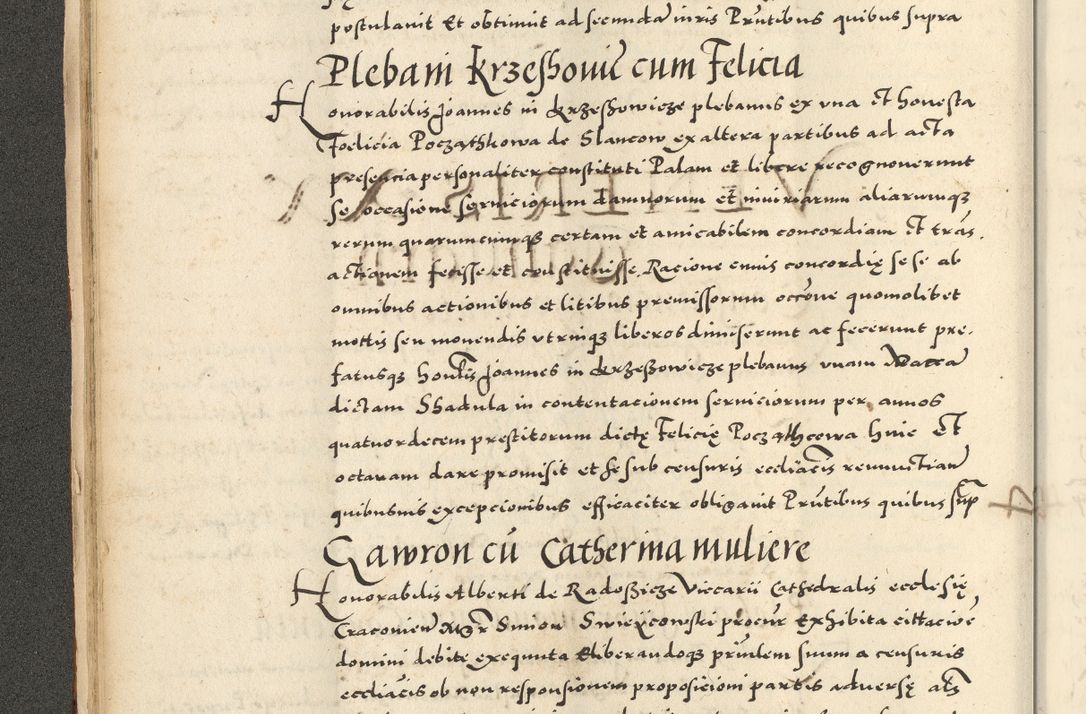 postulavit Et obtinuit ad secunda iuris Prntibus quibus supra
Plebani Krzeßhovie cum Felicia
Honorabilis Joannes in Krzeßhowicze plebanus ex una Et honesta
Foelicia Początkowa de Slancow ex altera partibus ad acta
presencia personaliter constituti Palam et libere recognoverunt
se occasione serviciorum damnorum et iniuriarum aliarumq
rerum quarumcumq certam et amicabilem concordiam Et tras
actionem fecisse et constituisse, Racione cuius concordię se se ab
omnibus actionibus et litibus premissorum occone quomolibet
mottis seu movendis utrinq liberos dimiserunt ac fecerunt pre
fatusq honblis Joannes in Krzeßowicze plebanus unam Vacca
dictam Shadula in contentacionem serviciorum per annos
quatuordecem prestitorum dictę Felicię Począthcowa huic Et
octavam dare promisit et se sub censuris eccliacis renunctian
quibusvis excepcionibus efficaciter obligavit Prntibus quibus sup
Gawron cu Catherina muliere
Honorabilis Alberti de Radoßicze Viccarii Cathedralis ecclesię
Cracovien Mgr Simon procur Exhibita cittacioe
domini debite exequuta Eliberandoq prinlem suum a censuris
eccliacis ob non responsionem proposicioni partis adversę als